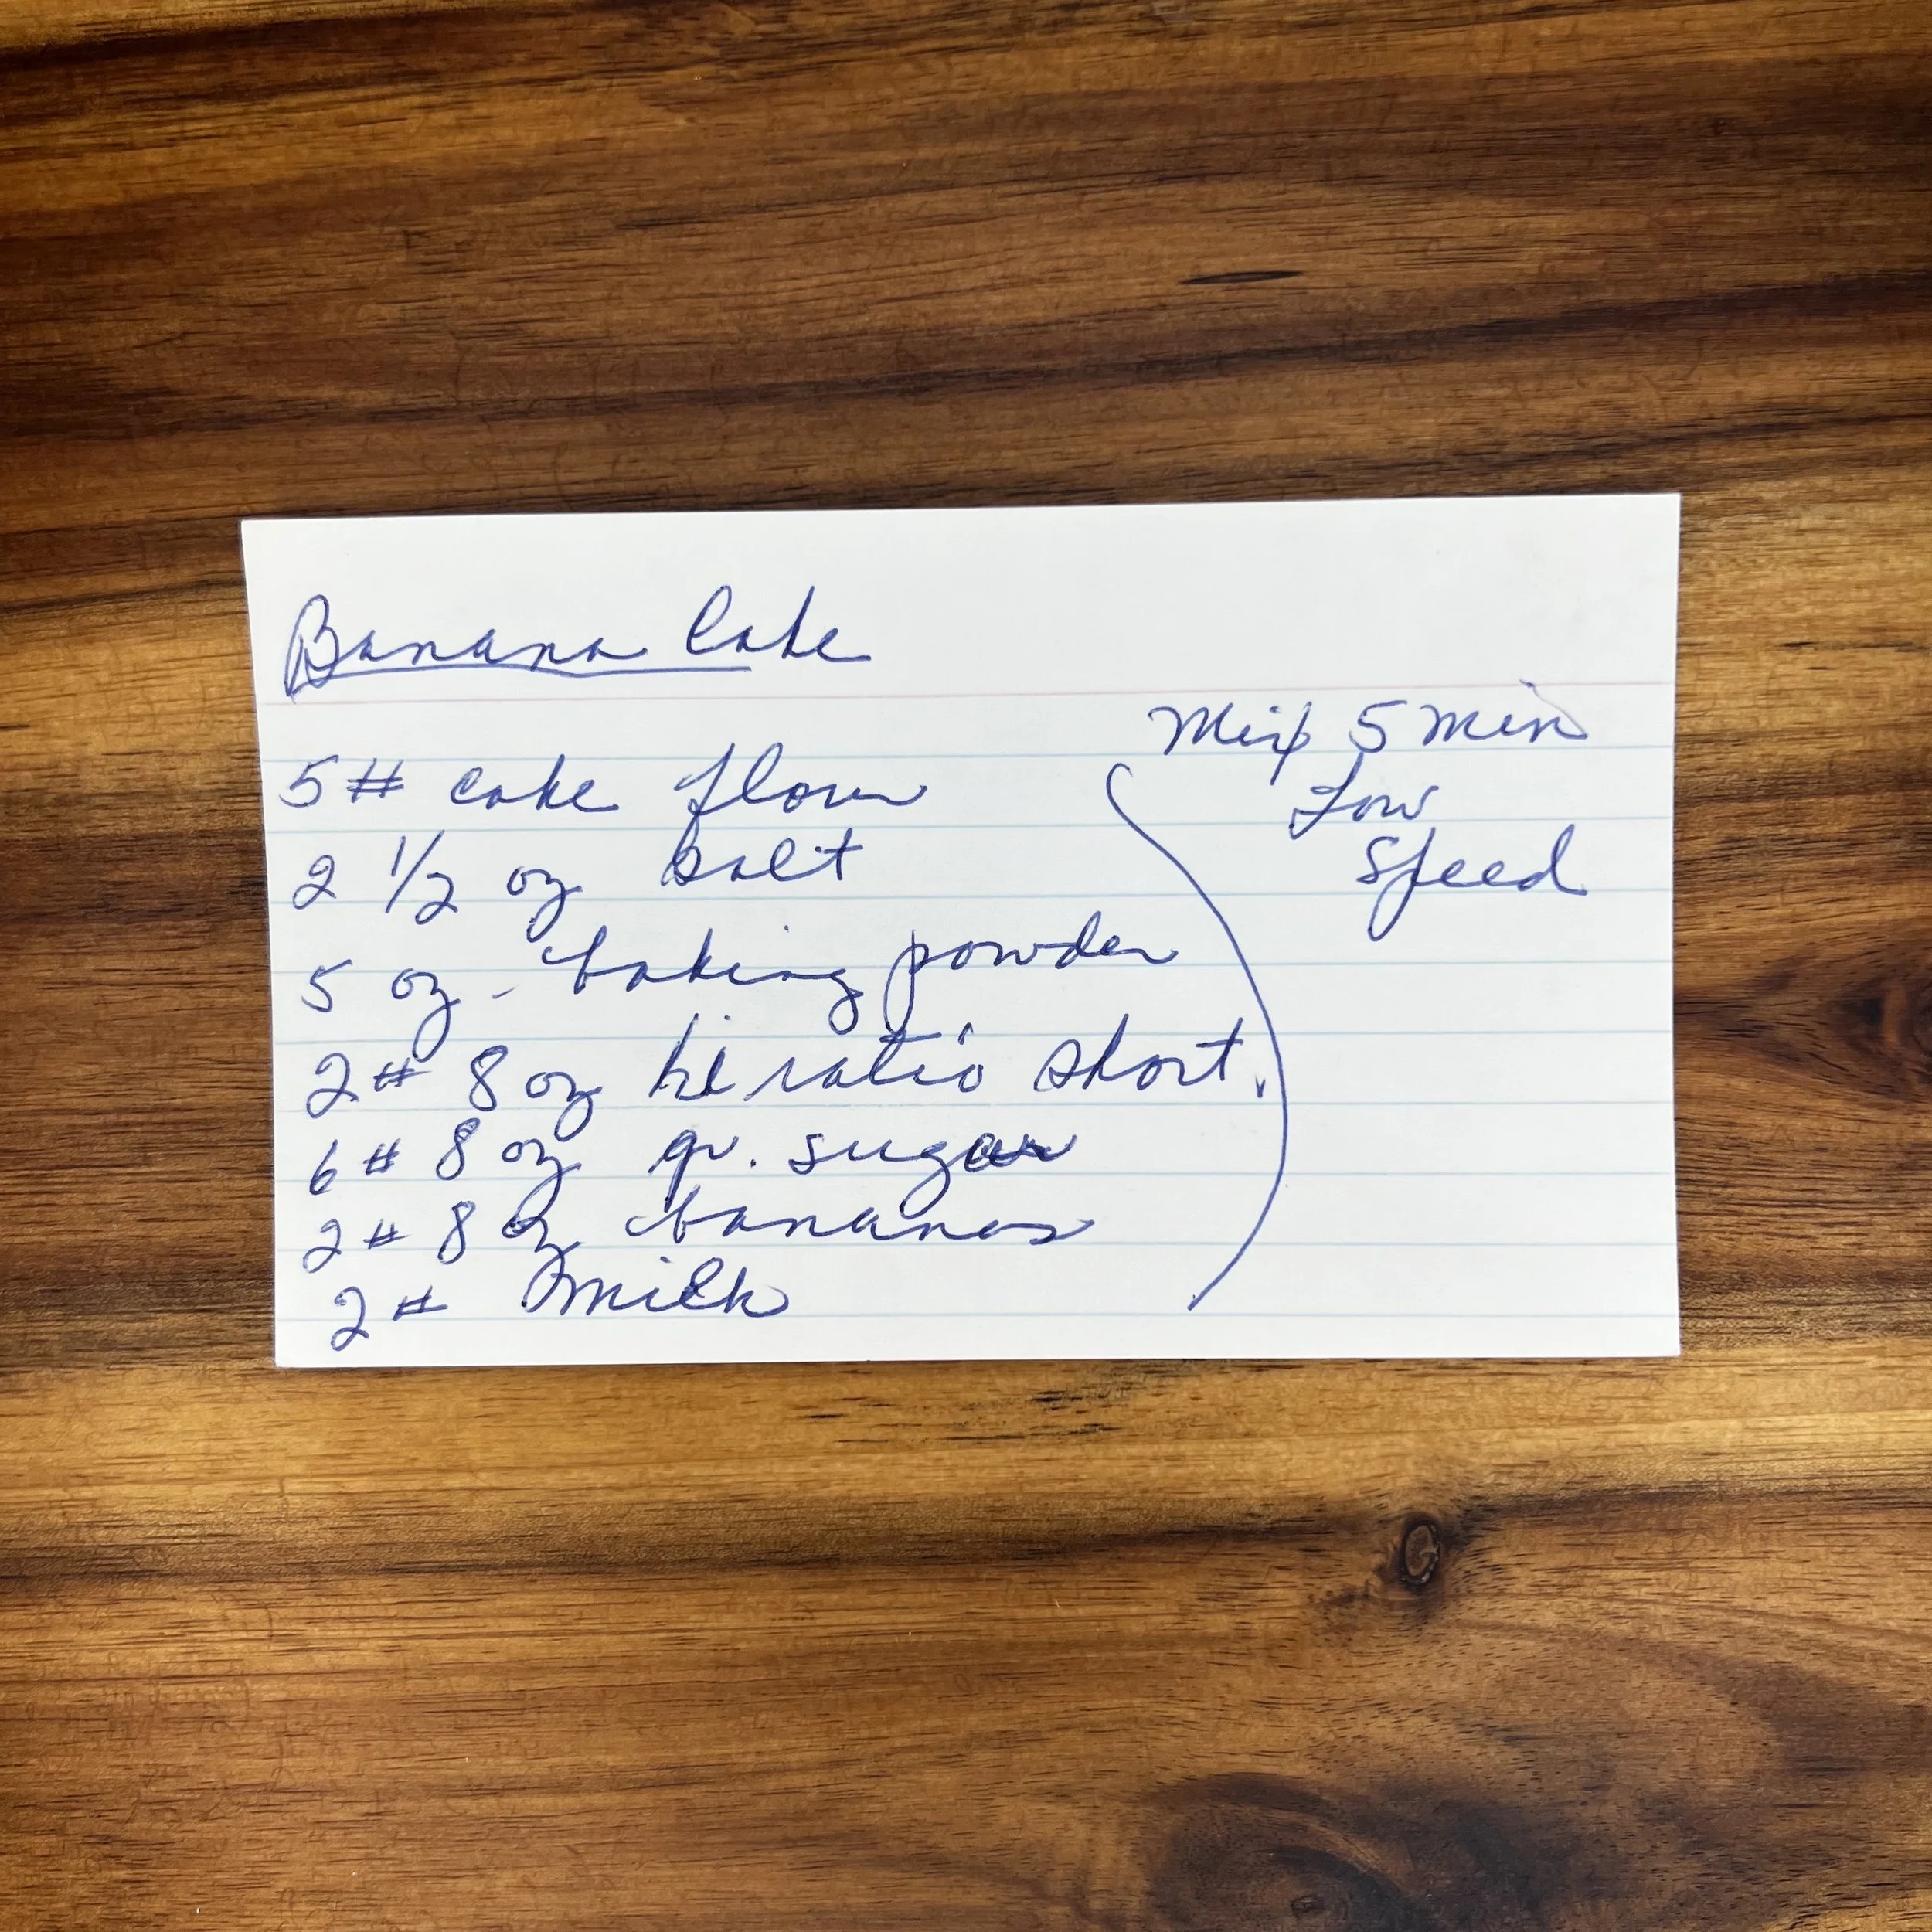 Banana Cake
Mix 5 min
Low
Speed
5# cake flour
2 1/2 oz salt
5 oz - baking powder
2# 8 oz hi ratio short.
6# 8 oz gr. sugar
2# 8 oz bananas
2# milk